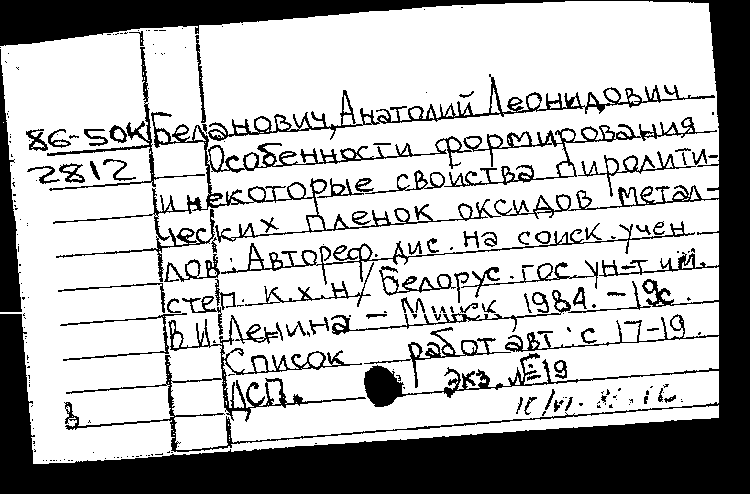 86-50К Беланович, Анатолий Леонидович.
2812 Особенности формирования
и некоторые свойства пиролити-
ческих пленок оксидов метал-
лов: Автореф. дис. на соиск. учен
степ. к.х.н / Белорус. гос. ун-т им.
В.И. Ленина - Минск, 1984. - 19с.
Список работ авт.: с. 17-19.
ДСП. Экз. №19
8